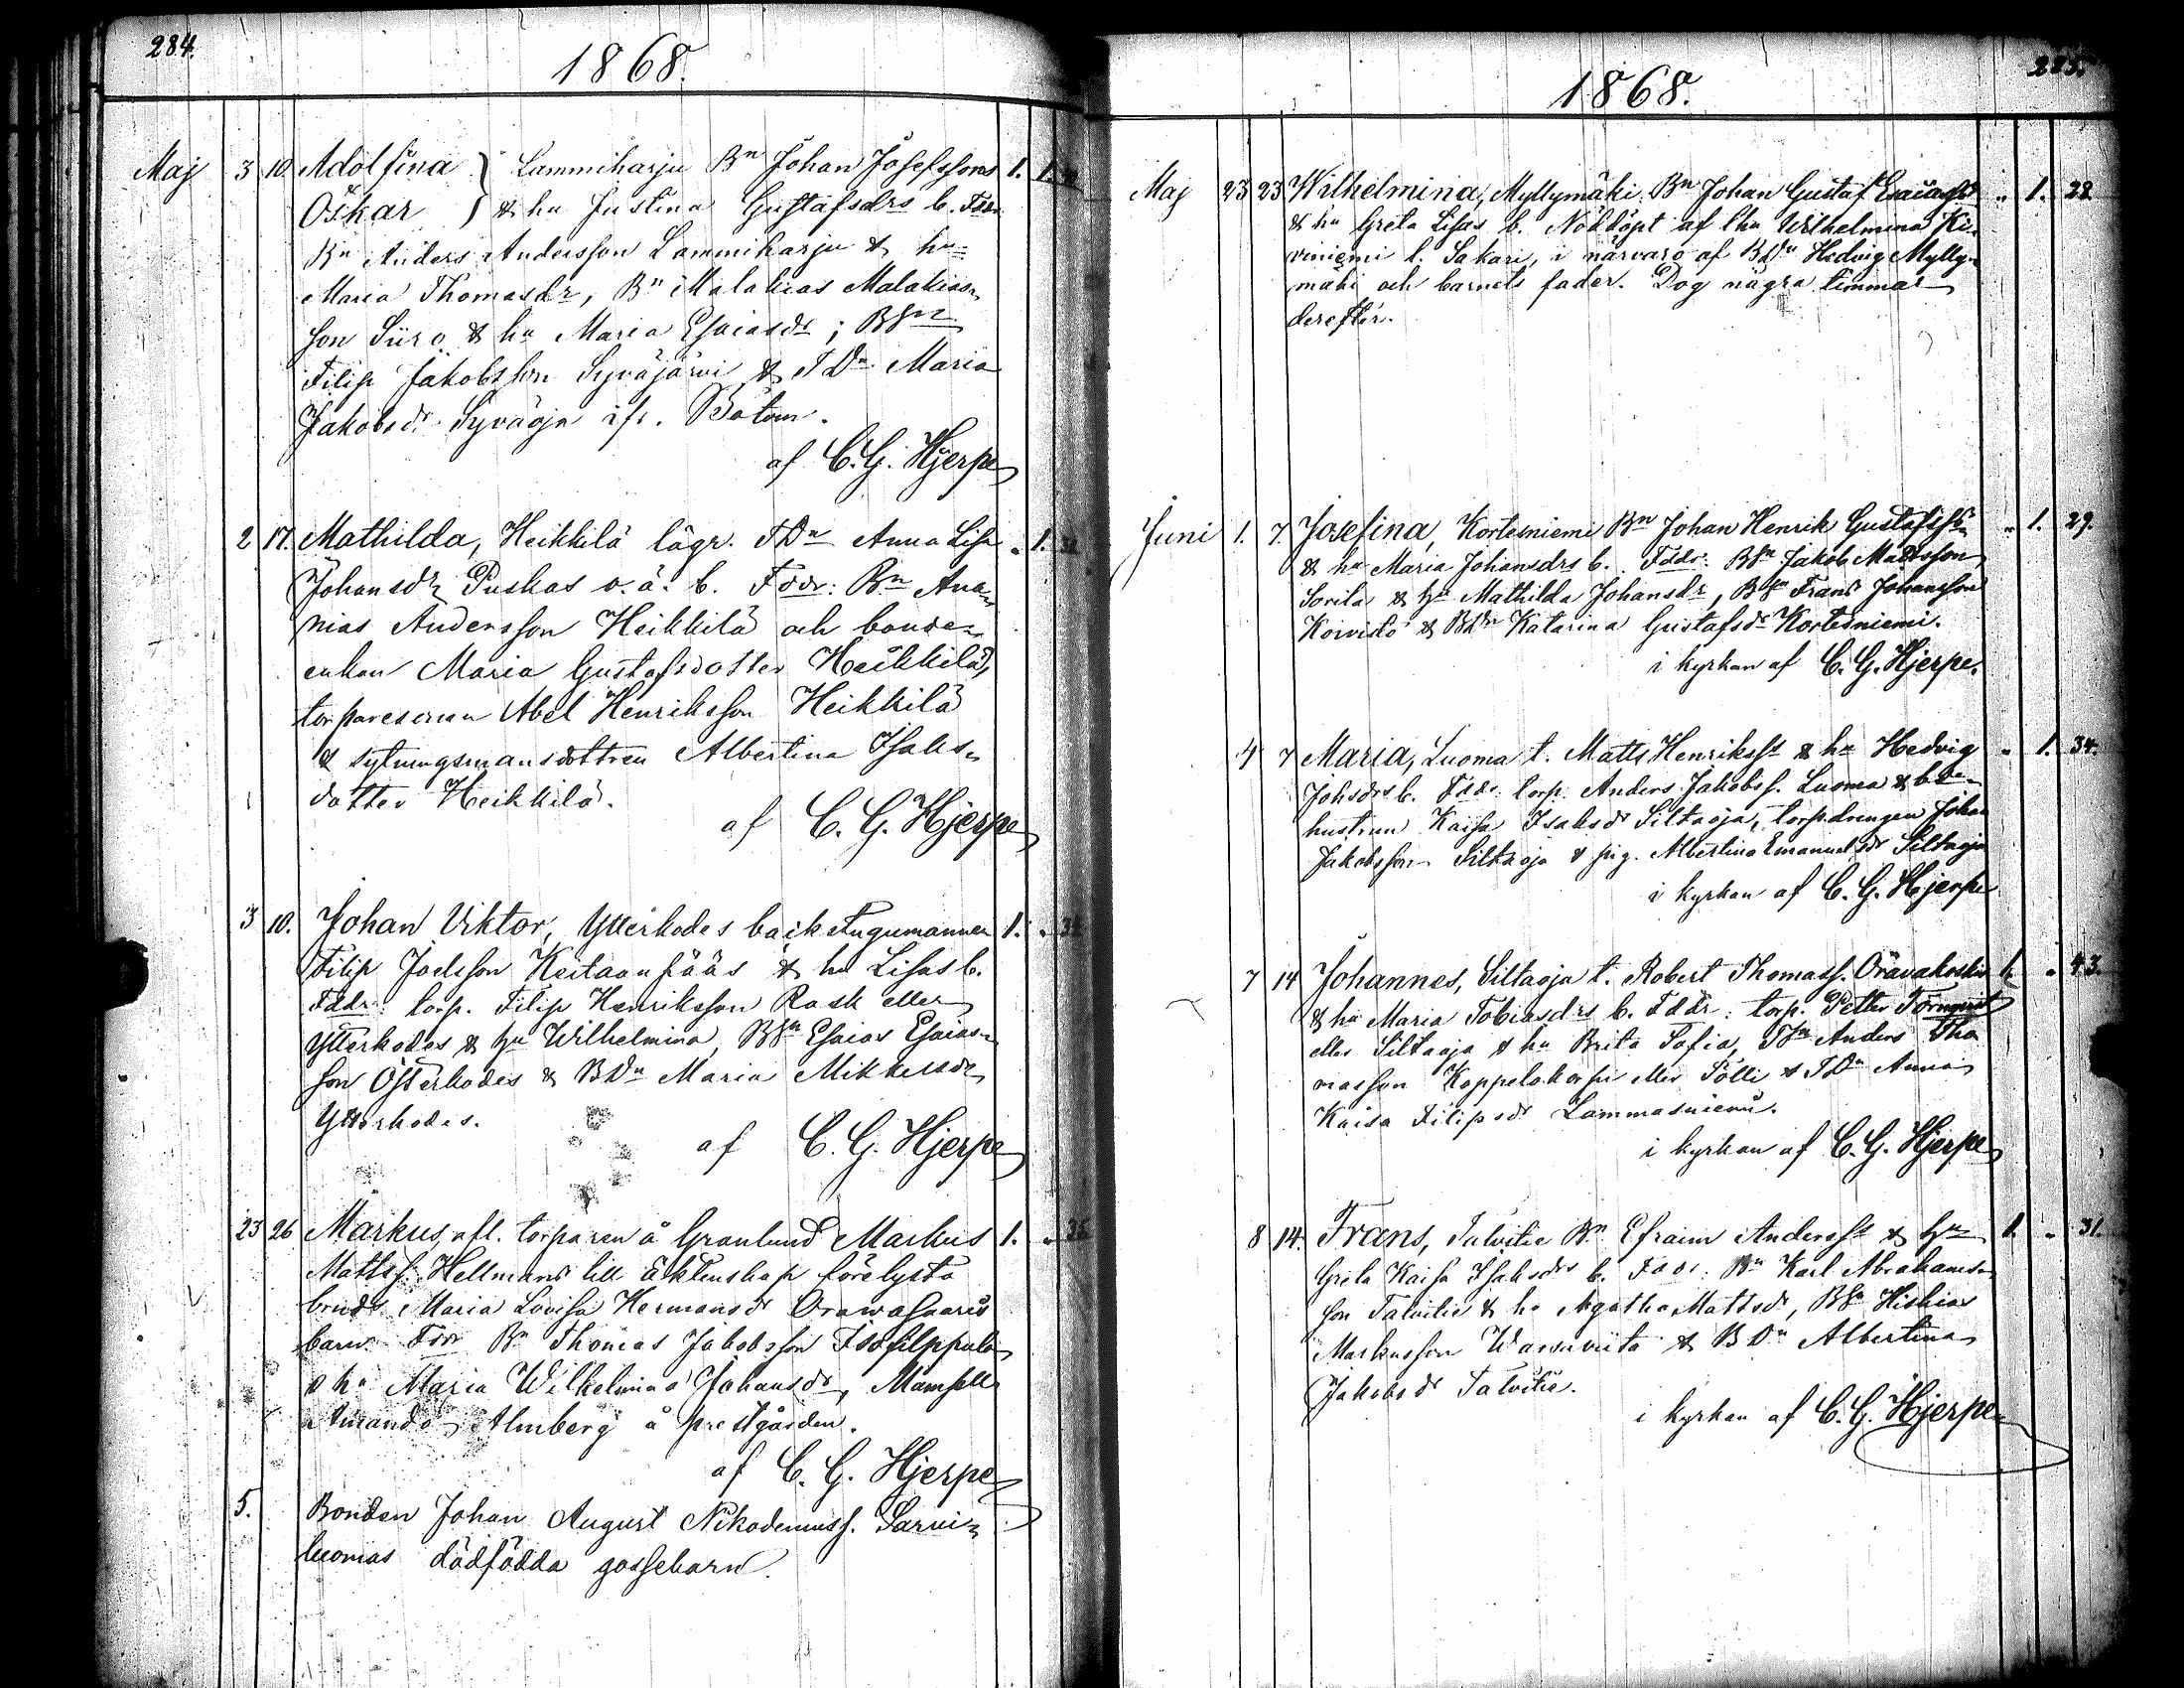 284.
1868.
Maj 3 10. Adolfina } Lammiharju Bn Johan Josefssons 1. 1.
Oskar } & hu Justina Gustafsdrs b. Fddr
Bn Anders Andersson Lammiharju & hu
Maria Thomasdr, Bn Malakias Malakias-
son Siiro & hu Maria Esaiasdr; BSn
Filip Jakobsson Syväjärvi & TDn Maria
Jakobsdr Syväoja ifr. Bötom.
af C. G. Hjerpe
2 17. Mathilda, Heikkilä lägr. TDn Anna Lisa „ 1.
Johansdr Puskas o. ä. b. Fddr: Bn Ana-
nias Andersson Heikkilä och bonde-
enkan Maria Gustafsdotter Heikkilä,
torparesonen Abel Henriksson Heikkilä
& sytningsmansdottren Albertina Isaks-
dotter Heikkilä.
af C. G. Hjerpe
3 10. Johan Viktor, Ytterkodes backstugumannen 1. „
Filip Joelsson Keitaanpääs & hu Lisas b.
Fddr: torp. Filip Henriksson Rask eller
Ytterkodes & hu Wilhelmina, BSn Esaias Esaias-
son Österkodes & BDn Maria Mikkelsdr
Ytterkodes.
af C. G. Hjerpe
23 26 Markus, afl. torparen å Granlund Markus 1. „ 36
Mattss. Hellmans till äktenskap förelysta
brud Maria Lovisa Hermansdr Orawasaaris
barn. Fddr Bn Thomas Jakobsson Isofilppula
& hu Maria Wilhelmina Johansdr, Mamsell
Amanda Almberg å prestgården.
af C. G. Hjerpe
5. Bonden Johan August Nikodemuss. Sarvi-
luomas dödfödda gossebarn.
1868.
Maj 23 23 Wilhelmina, Myllymäki Bn Johan Gustaf Esaiass „ 1. 28.
& hu Greta Lisas b. Nöddöpt af Ehu Wilhelmina Ki-
viniemi l. Sakari, i närvaro af BDn Hedvig Mylly-
mäki och barnets fader. Dog några timmar
derefter.
Juni 1. 7. Josefina, Kortesniemi Bn Johan Henrik Gustafss „ 1. 29.
& hu Maria Johansdrs b. Fddr: BSn Jakob Mattsson
Sorila & hu Mathilda Johansdr, BSn Frans Johansson
Koivisto & BDn Katarina Gustafsdr Kortesniemi.
i kyrkan af C. G. Hjerpe.
4 7 Maria, Luoma t. Matts Henrikss & hu Hedvig „ 1. 34.
Johsdrs b. Fddr. torp. Anders Jakobss. Luoma & bde-
hustrun Kaisa Isaksdr Siltaoja, torp.drengen Johan
Jakobsson Siltaoja & pig. Albertina Emanuelsdr Siltaoja
i kyrkan af C. G. Hjerpe
7 14 Johannes, Siltaoja t. Robert Thomass. Oravakoskis 1. „ 43.
& hu Maria Tobiasdrs b. Fddr: torp. Petter Törnqvist
eller Siltaoja & hu Brita Sofia, TSn Anders Tho
masson Koppelokorpi eller Sölli & TDn Anna
Kaisa Filipsdr Lammasniemi.
i kyrkan af C. G. Hjerpe
8 14. Frans, Talvitie Bn Efraim Anderss & hu 1. „ 31.
Greta Kaisa Isaksdrs b. Fddr: Bn Karl Abrahams-
son Talvitie & hu Agatha Mattsdr, BSn Hiskias
Markusson Warsaviita & BDn Albertina
Jakobsdr Talvitie.
i kyrkan af C. G. Hjerpe